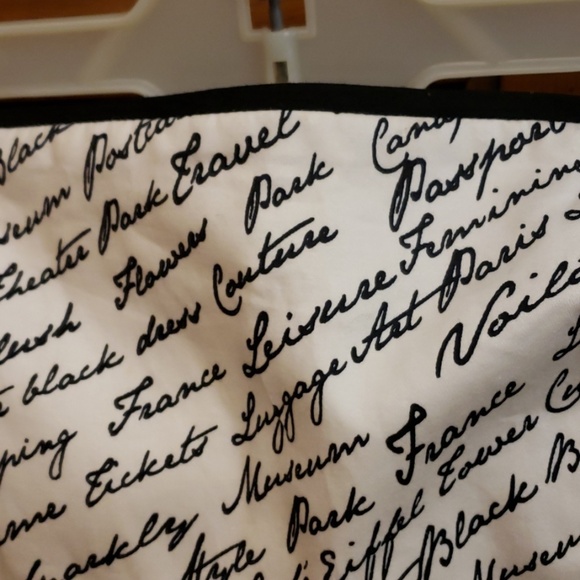 Black
Museum Postcard Travel
Theater Park Travel
Flowers Park Canap
Blush
black dress Couture Passport
France Leisure Feminine
Tickets Luggage Art Paris
Voila
Sparkly Museum France
Style Park Eiffel Tower
Black
Museum